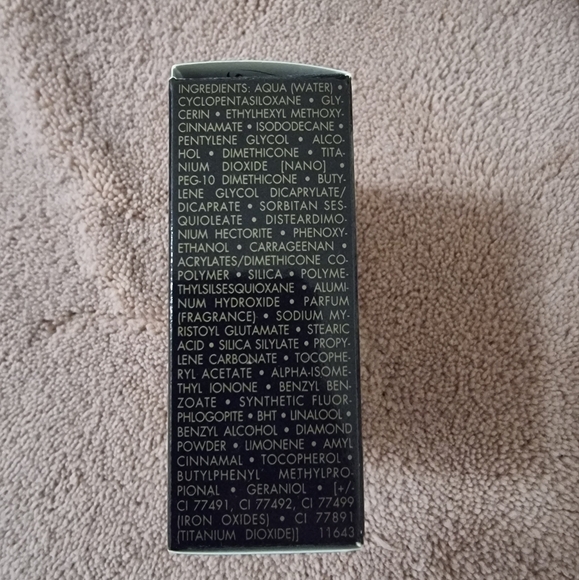 INGREDIENTS: AQUA (WATER) •
CYCLOPENTASILOXANE • GLY-
CERIN • ETHYLHEXYL METHOXY-
CINNAMATE • ISODODECANE •
PENTYLENE GLYCOL • ALCO-
HOL • DIMETHICONE • TITA-
NIUM DIOXIDE [NANO] •
PEG-10 DIMETHICONE • BUTY-
LENE GLYCOL DICAPRYLATE/
DICAPRATE • SORBITAN SES-
QUIOLEATE • DISTEARDIMO-
NIUM HECTORITE • PHENOXY-
ETHANOL • CARRAGEENAN •
ACRYLATES/DIMETHICONE CO-
POLYMER • SILICA • POLYME-
THYLSILSESQUIOXANE • ALUMI-
NUM HYDROXIDE • PARFUM
(FRAGRANCE) • SODIUM MY-
RISTOYL GLUTAMATE • STEARIC
ACID • SILICA SILYLATE • PROPY-
LENE CARBONATE • TOCOPHE-
RYL ACETATE • ALPHA-ISOME-
THYL IONONE • BENZYL BEN-
ZOATE • SYNTHETIC FLUOR-
PHLOGOPITE • BHT • LINALOOL •
BENZYL ALCOHOL • DIAMOND
POWDER • LIMONENE • AMYL
CINNAMAL • TOCOPHEROL •
BUTYLPHENYL METHYLPRO-
PIONAL • GERANIOL • [+/-
CI 77491, CI 77492, CI 77499
(IRON OXIDES) • CI 77891
(TITANIUM DIOXIDE)] 11643